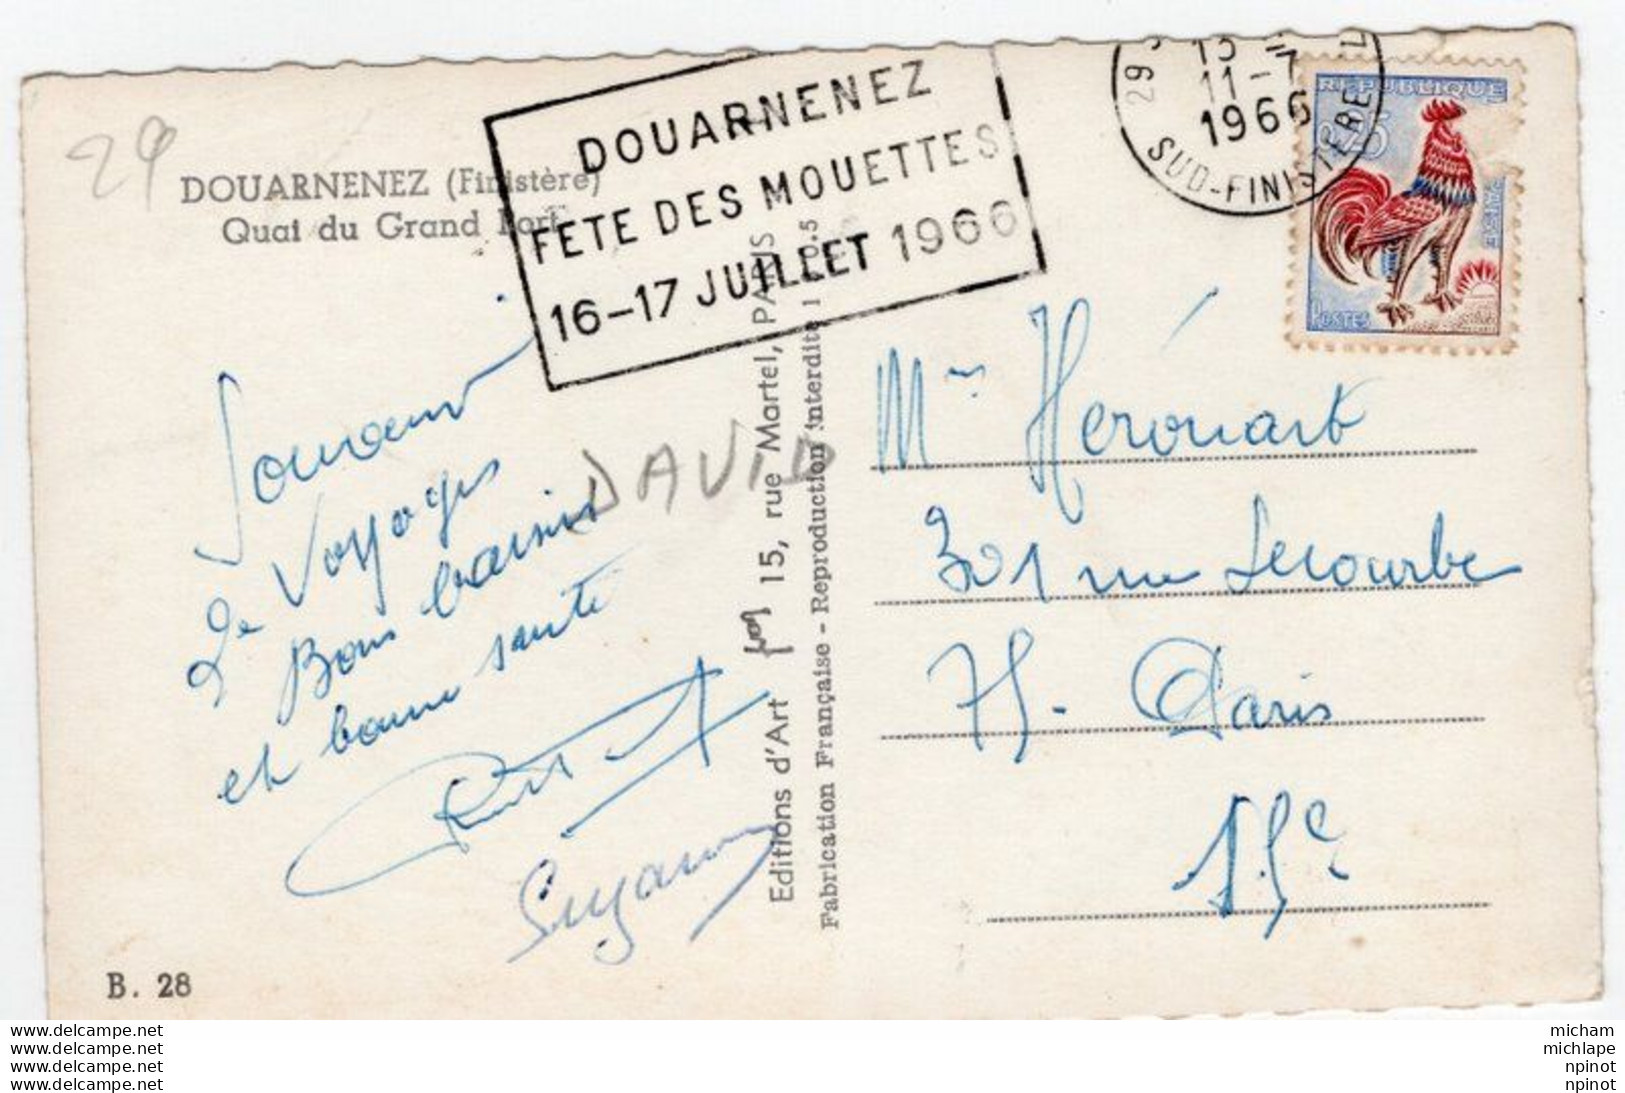 29
DOUARNENEZ (Finistère)
Quai du Grand Port
DOUARNENEZ
FETE DES MOUETTES
16-17 JUILLET 1966
29
11-7
1966
SUD-FINISTERE
REPUBLIQUE
FRANÇAISE
POSTES
Souvenir
de Voyages
Bons baisers
et bonne santé
Suzanne
DAVID
Editions d'Art 15, rue Martel, PARIS
Fabrication Française - Reproduction interdite
Mme Hérouart
301 rue Lecourbe
75. Paris
15e
B. 28
www.delcampe.net
www.delcampe.net
www.delcampe.net
www.delcampe.net
micham
michlape
npinot
npinot